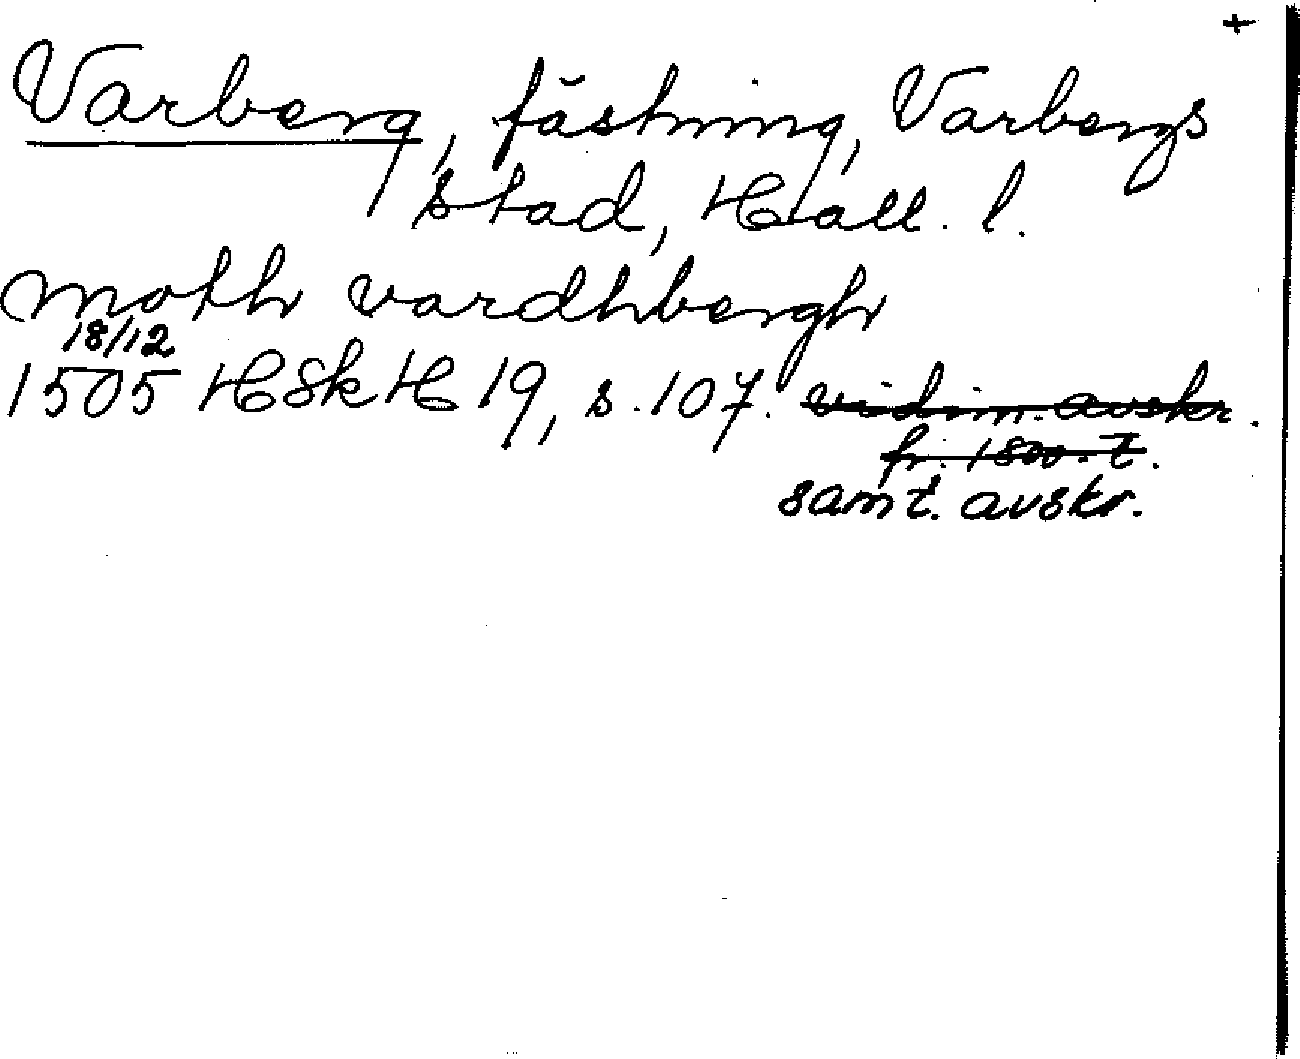 +
Varberg, fästning, Varbergs
stad, Hall. l.
moth vardhbergh
18/12
1505 HSkH 19, s. 107. vidim. avskr.
fr. 1800-t.
samt. avskr.